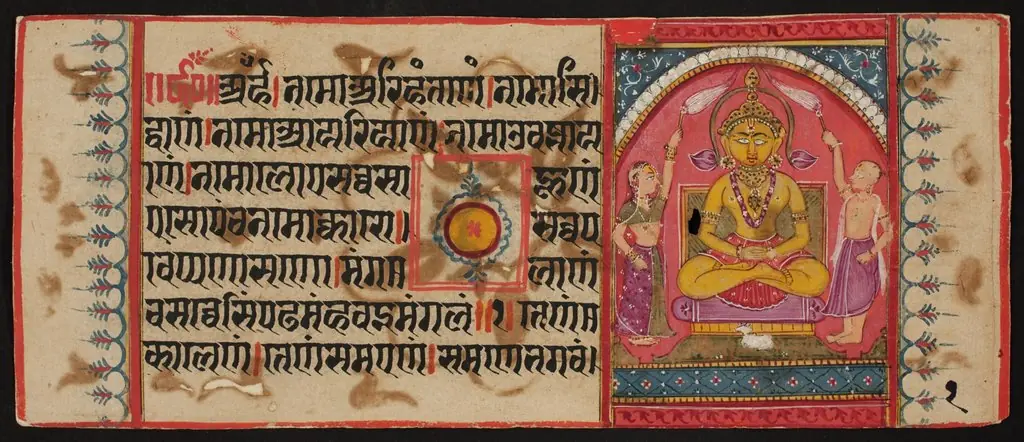 ॥र्द०॥ अर्हं। णमो अरिहंताणं। णमो सि
द्धाणं। णमो आयरियाणं। णमो उवज्झाया
णं। णमो लोए सव्वसा हूणं
एसो पंच णमोक्कारो। सव्वप
ावप्पणासणो। मंगा लाणं
च सव्वेसिं पढमं हवइ मंगलं॥१ तेणं
कालेणं। तेणं समएणं। समणे भगवं।
१